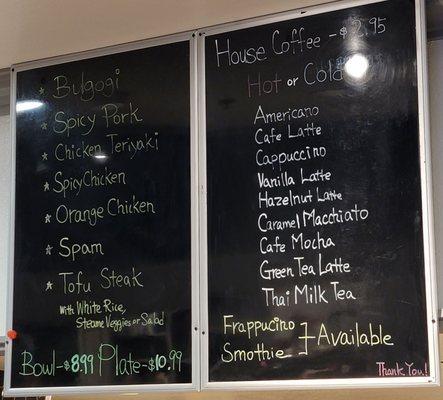 * Bulgogi
* Spicy Pork
* Chicken Teriyaki
* Spicy Chicken
* Orange Chicken
* Spam
* Tofu Steak
with White Rice,
Steame Veggies or Salad
Bowl-$8.99 Plate-$10.99
House Coffee - $2.95
Hot or Cold
Americano
Cafe Latte
Cappuccino
Vanilla Latte
Hazelnut Latte
Caramel Macchiato
Cafe Mocha
Green Tea Latte
Thai Milk Tea
Frappucino
Smoothie - } Available
Thank You!